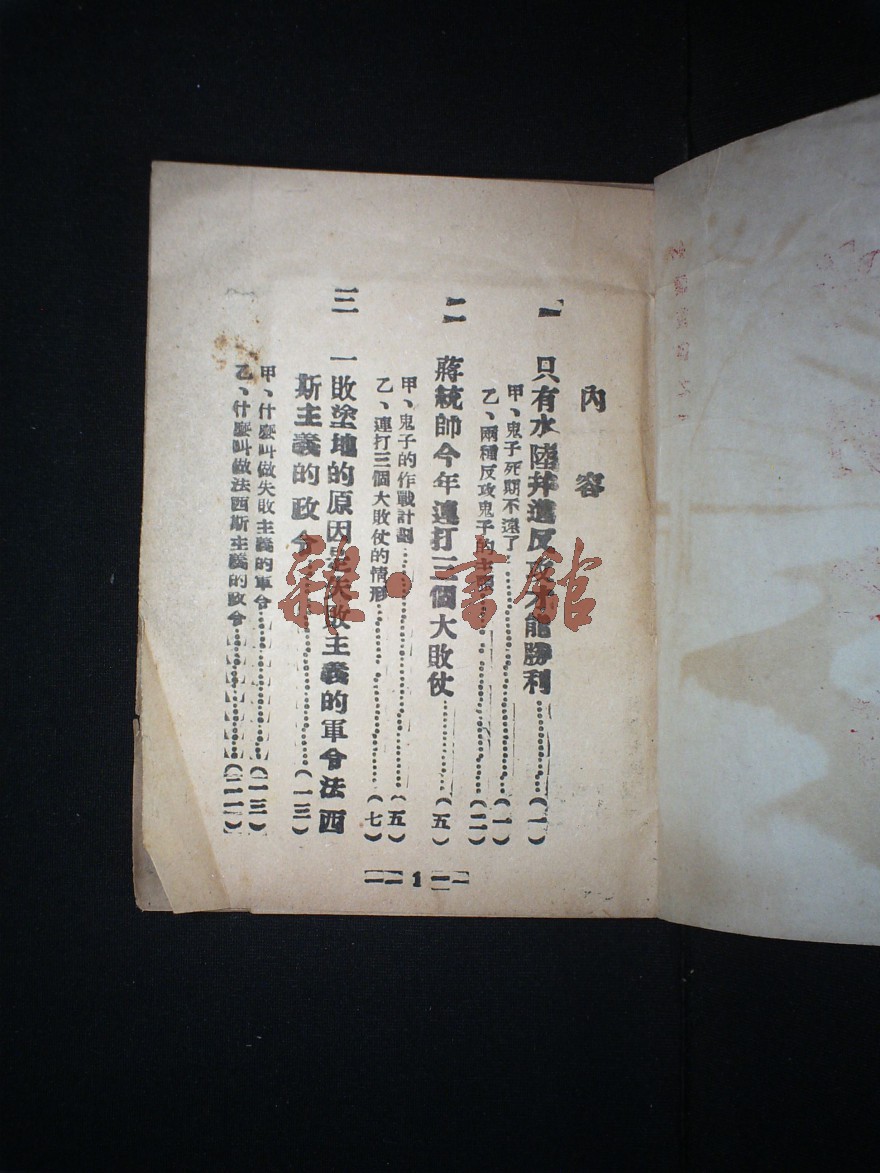 內容
一 只有水陸并進反攻才能勝利………(一)
甲、鬼子死期不遠了………(一)
乙、兩種反攻鬼子的主張………(二)
二 蔣統帥今年連打三個大敗仗………(五)
甲、鬼子的作戰計劃………(五)
乙、連打三個大敗仗的情形………(七)
三 一敗塗地的原因是失敗主義的軍令法西
斯主義的政令………(一三)
甲、什麼叫做失敗主義的軍令………(一三)
乙、什麼叫做法西斯主義的政令………(二一)
1
雜·書館